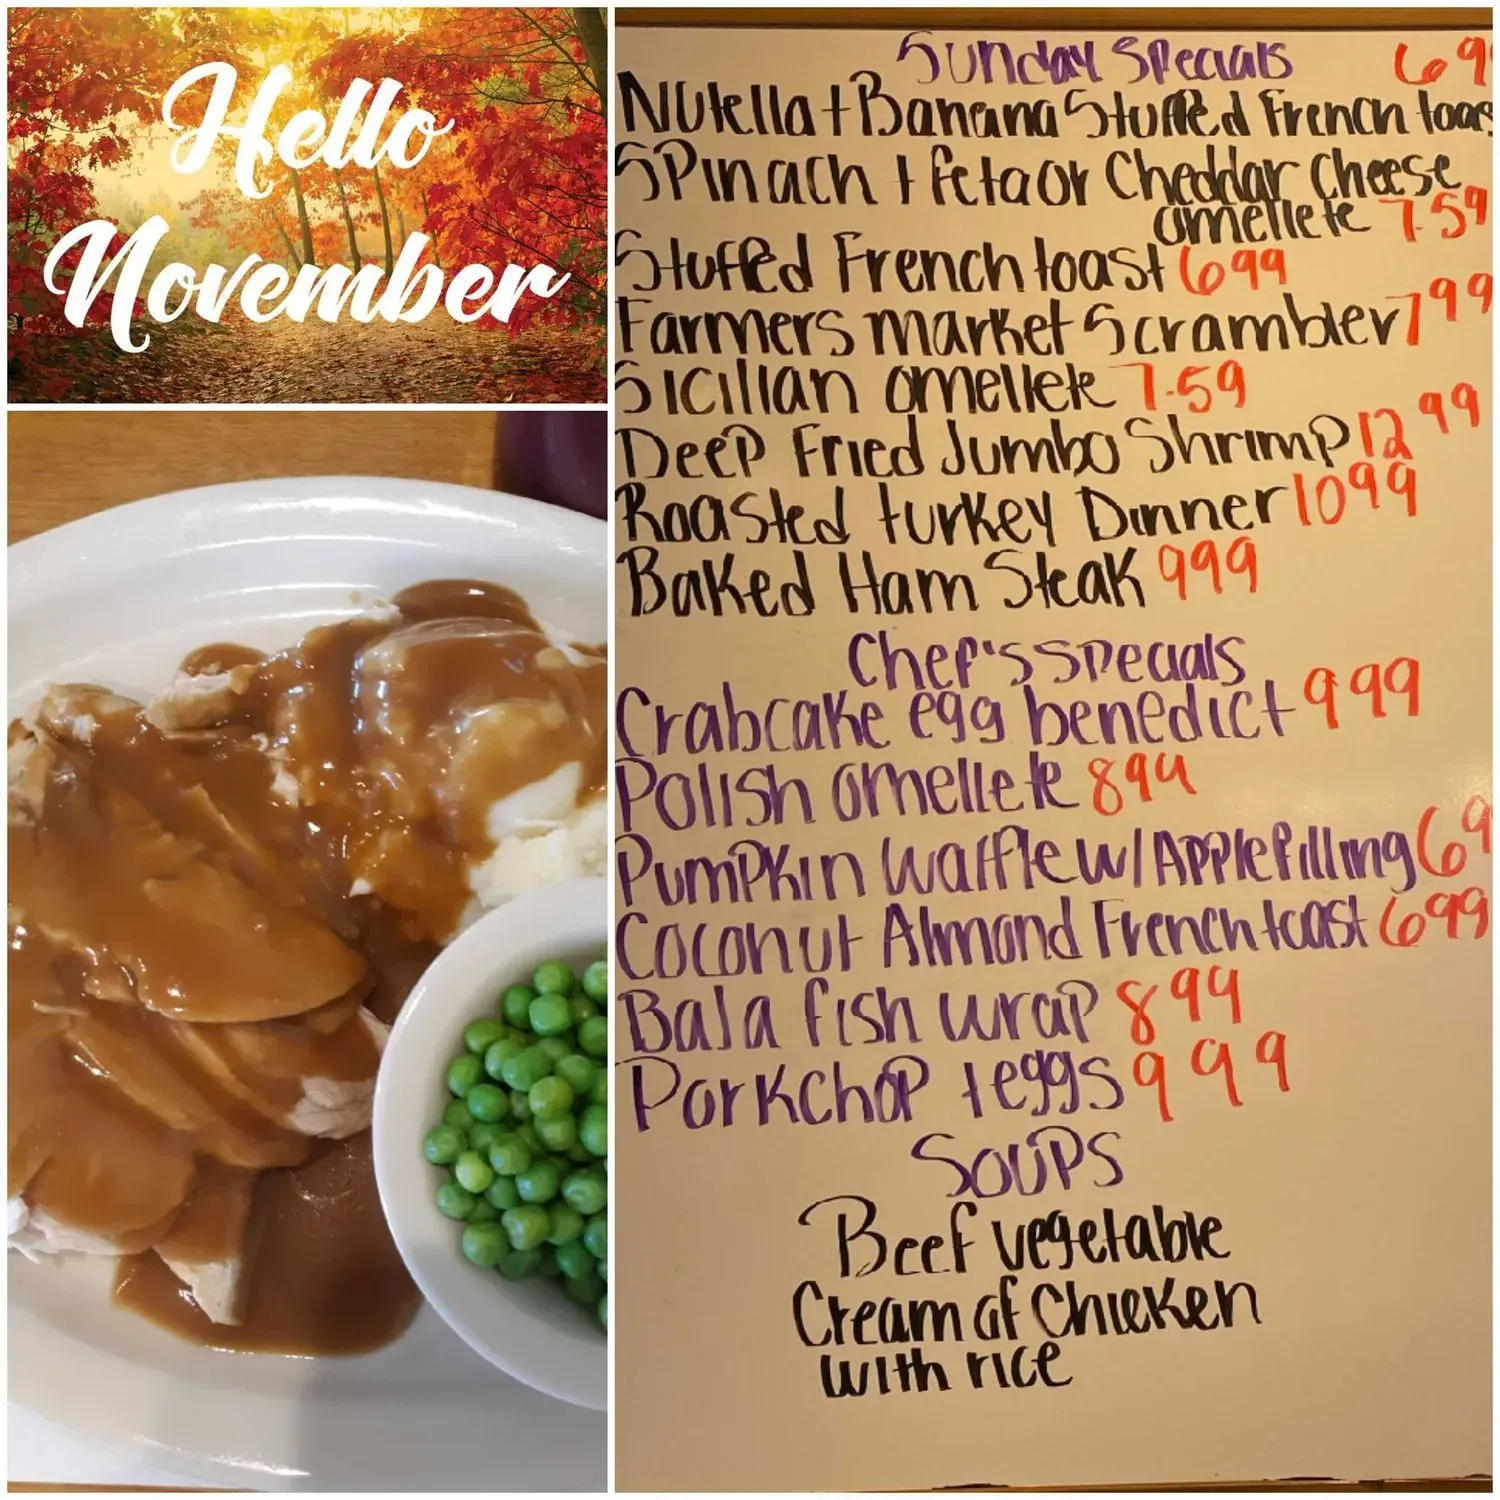 Hello
November
Sunday Specials 699
Nutella + Banana Stuffed French toast
Spinach + feta or Cheddar Cheese
omellete 7.59
Stuffed French toast 699
Farmers market Scrambler 799
Sicilian omellete 7.59
Deep Fried Jumbo Shrimp 12 99
Roasted turkey Dinner 10 99
Baked Ham Steak 999
Chef's Specials
Crabcake egg benedict 999
Polish omellete 899
Pumpkin waffle w/ Apple filling 69
Coconut Almond French toast 699
Baja fish wrap 899
Porkchop + eggs 999
Soups
Beef vegetable
Cream of Chicken
with rice